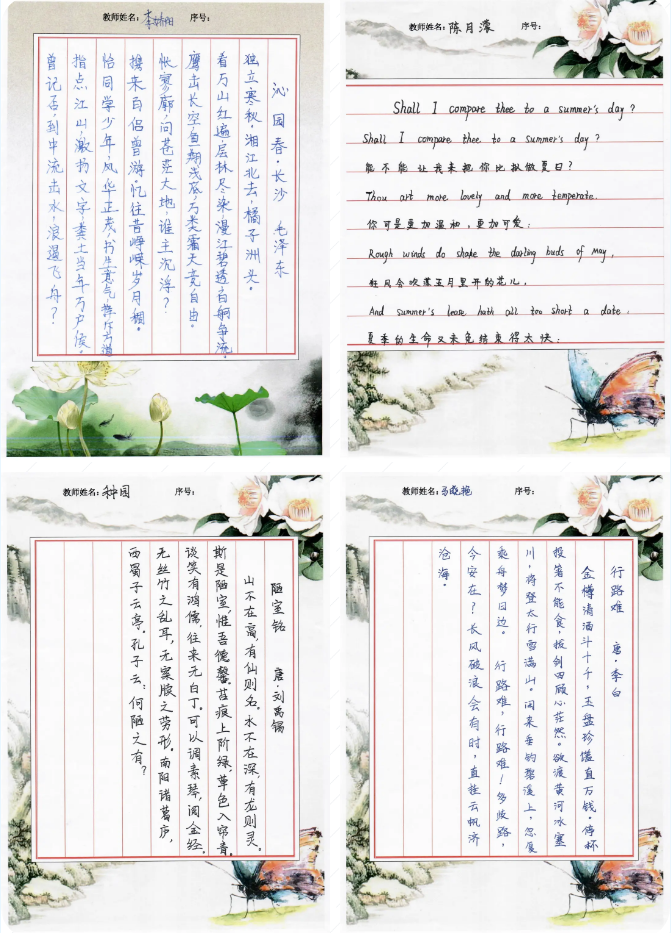 教师姓名： 序号：
沁园春·长沙 毛泽东
独立寒秋，湘江北去，橘子洲头。
看万山红遍，层林尽染，漫江碧透，百舸争流。
鹰击长空，鱼翔浅底，万类霜天竞自由。
怅寥廓，问苍茫大地，谁主沉浮？
携来百侣曾游，忆往昔峥嵘岁月稠。
恰同学少年，风华正茂，书生意气，挥斥方遒
指点江山，激扬文字，粪土当年万户侯。
曾记否，到中流击水，浪遏飞舟？
教师姓名：陈月濛 序号：
Shall I compare thee to a summer's day ?
Shall I compare thee to a summer's day ?
能不能让我来把你比拟做夏日？
Thou art more lovely and more temperate.
你可是更加温和，更加可爱：
Rough winds do shake the darling buds of May,
狂风会吹落五月里开的花儿，
And summer's lease hath all too short a date.
夏季的生命又未免结束得太快：
教师姓名：种园 序号：
陋室铭 唐·刘禹锡
山不在高，有仙则名。水不在深，有龙则灵。
斯是陋室，惟吾德馨。苔痕上阶绿，草色入帘青。
谈笑有鸿儒，往来无白丁。可以调素琴，阅金经。
无丝竹之乱耳，无案牍之劳形。南阳诸葛庐，
西蜀子云亭。孔子云：何陋之有？
教师姓名：马晓艳 序号：
行路难 唐·李白
金樽清酒斗十千，玉盘珍馐直万钱。停杯
投箸不能食，拔剑四顾心茫然。欲渡黄河冰塞
川，将登太行雪满山。闲来垂钓碧溪上，忽复
乘舟梦日边。 行路难，行路难！多歧路，
今安在？长风破浪会有时，直挂云帆济
沧海。